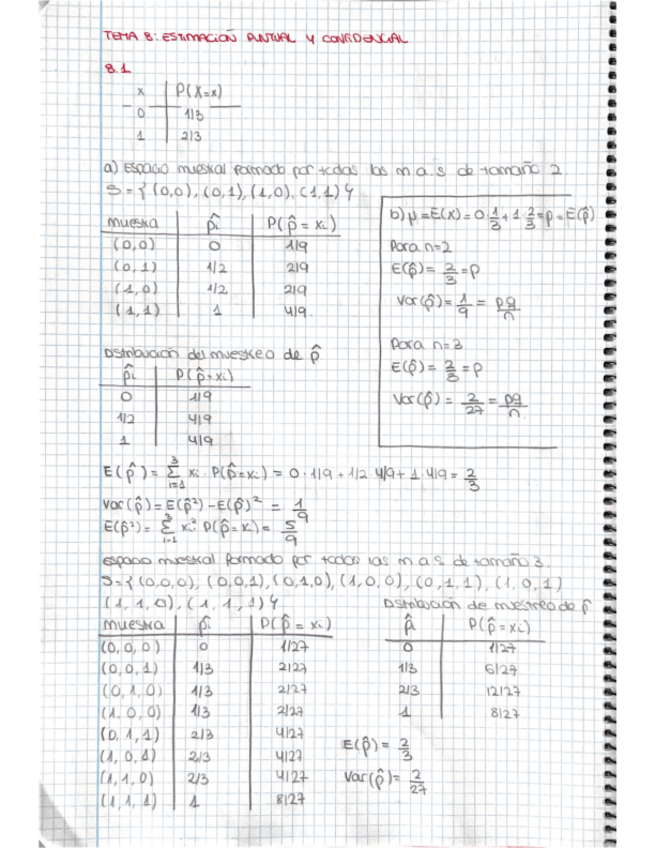 TEMA 8: ESTIMACIÓN PUNTUAL Y CONFIDENCIAL
8.1
x | P(X=x)
0 | 1/3
1 | 2/3
a) Espacio muestral formado por todas las m.a.s de tamaño 2.
S = { (0,0), (0,1), (1,0), (1,1) }
muestra | p̂i | P(p̂ = xi)
(0,0) | 0 | 1/9
(0,1) | 1/2 | 2/9
(1,0) | 1/2 | 2/9
(1,1) | 1 | 4/9
b) μ = E(X) = 0·1/3 + 1·2/3 = p = E(p̂)
Para n=2
E(p̂) = 2/3 = p
Var(p̂) = 1/9 = pq/n
Para n=3
E(p̂) = 2/3 = p
Var(p̂) = 2/27 = pq/n
Distribución del muestreo de p̂
p̂i | P(p̂=xi)
0 | 1/9
1/2 | 4/9
1 | 4/9
E(p̂) = 3 Σ i=1 xi · P(p̂=xi) = 0·1/9 + 1/2·4/9 + 1·4/9 = 2/3
Var(p̂) = E(p̂²) - E(p̂)² = 1/9
E(p̂²) = 3 Σ i=1 xi² P(p̂=xi) = 5/9
Espacio muestral formado por todas las m.a.s de tamaño 3.
S = { (0,0,0), (0,0,1), (0,1,0), (1,0,0), (0,1,1), (1,0,1)
(1,1,0), (1,1,1) }
muestra | p̂i | P(p̂ = xi)
(0,0,0) | 0 | 1/27
(0,0,1) | 1/3 | 2/27
(0,1,0) | 1/3 | 2/27
(1,0,0) | 1/3 | 2/27
(0,1,1) | 2/3 | 4/27
(1,0,1) | 2/3 | 4/27
(1,1,0) | 2/3 | 4/27
(1,1,1) | 1 | 8/27
Distribución de muestreo de p̂
p̂i | P(p̂=xi)
0 | 1/27
1/3 | 6/27
2/3 | 12/27
1 | 8/27
E(p̂) = 2/3
Var(p̂) = 2/27